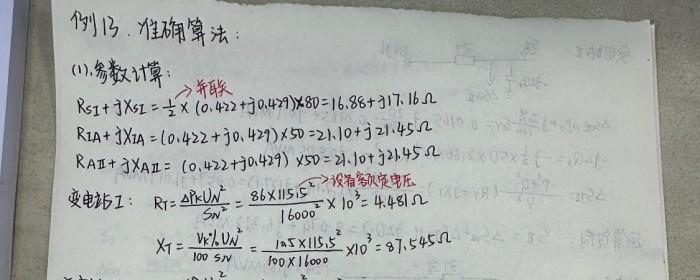 例13. 准确算法:
(1).参数计算:
→并联
RSI+jXSI=1/2×(0.422+j0.429)×80=16.88+j17.16Ω
RIA+jXIA=(0.422+j0.429)×50=21.10+j21.45Ω
RAII+jXAII=(0.422+j0.429)×50=21.10+j21.45Ω
→设备额定电压
变电站I: RT=ΔPKUN²/SN²=86×115.5²/16000²×10³=4.481Ω
XT=VK%UN²/100SN=10.5×115.5²/100×16000×10³=87.545Ω